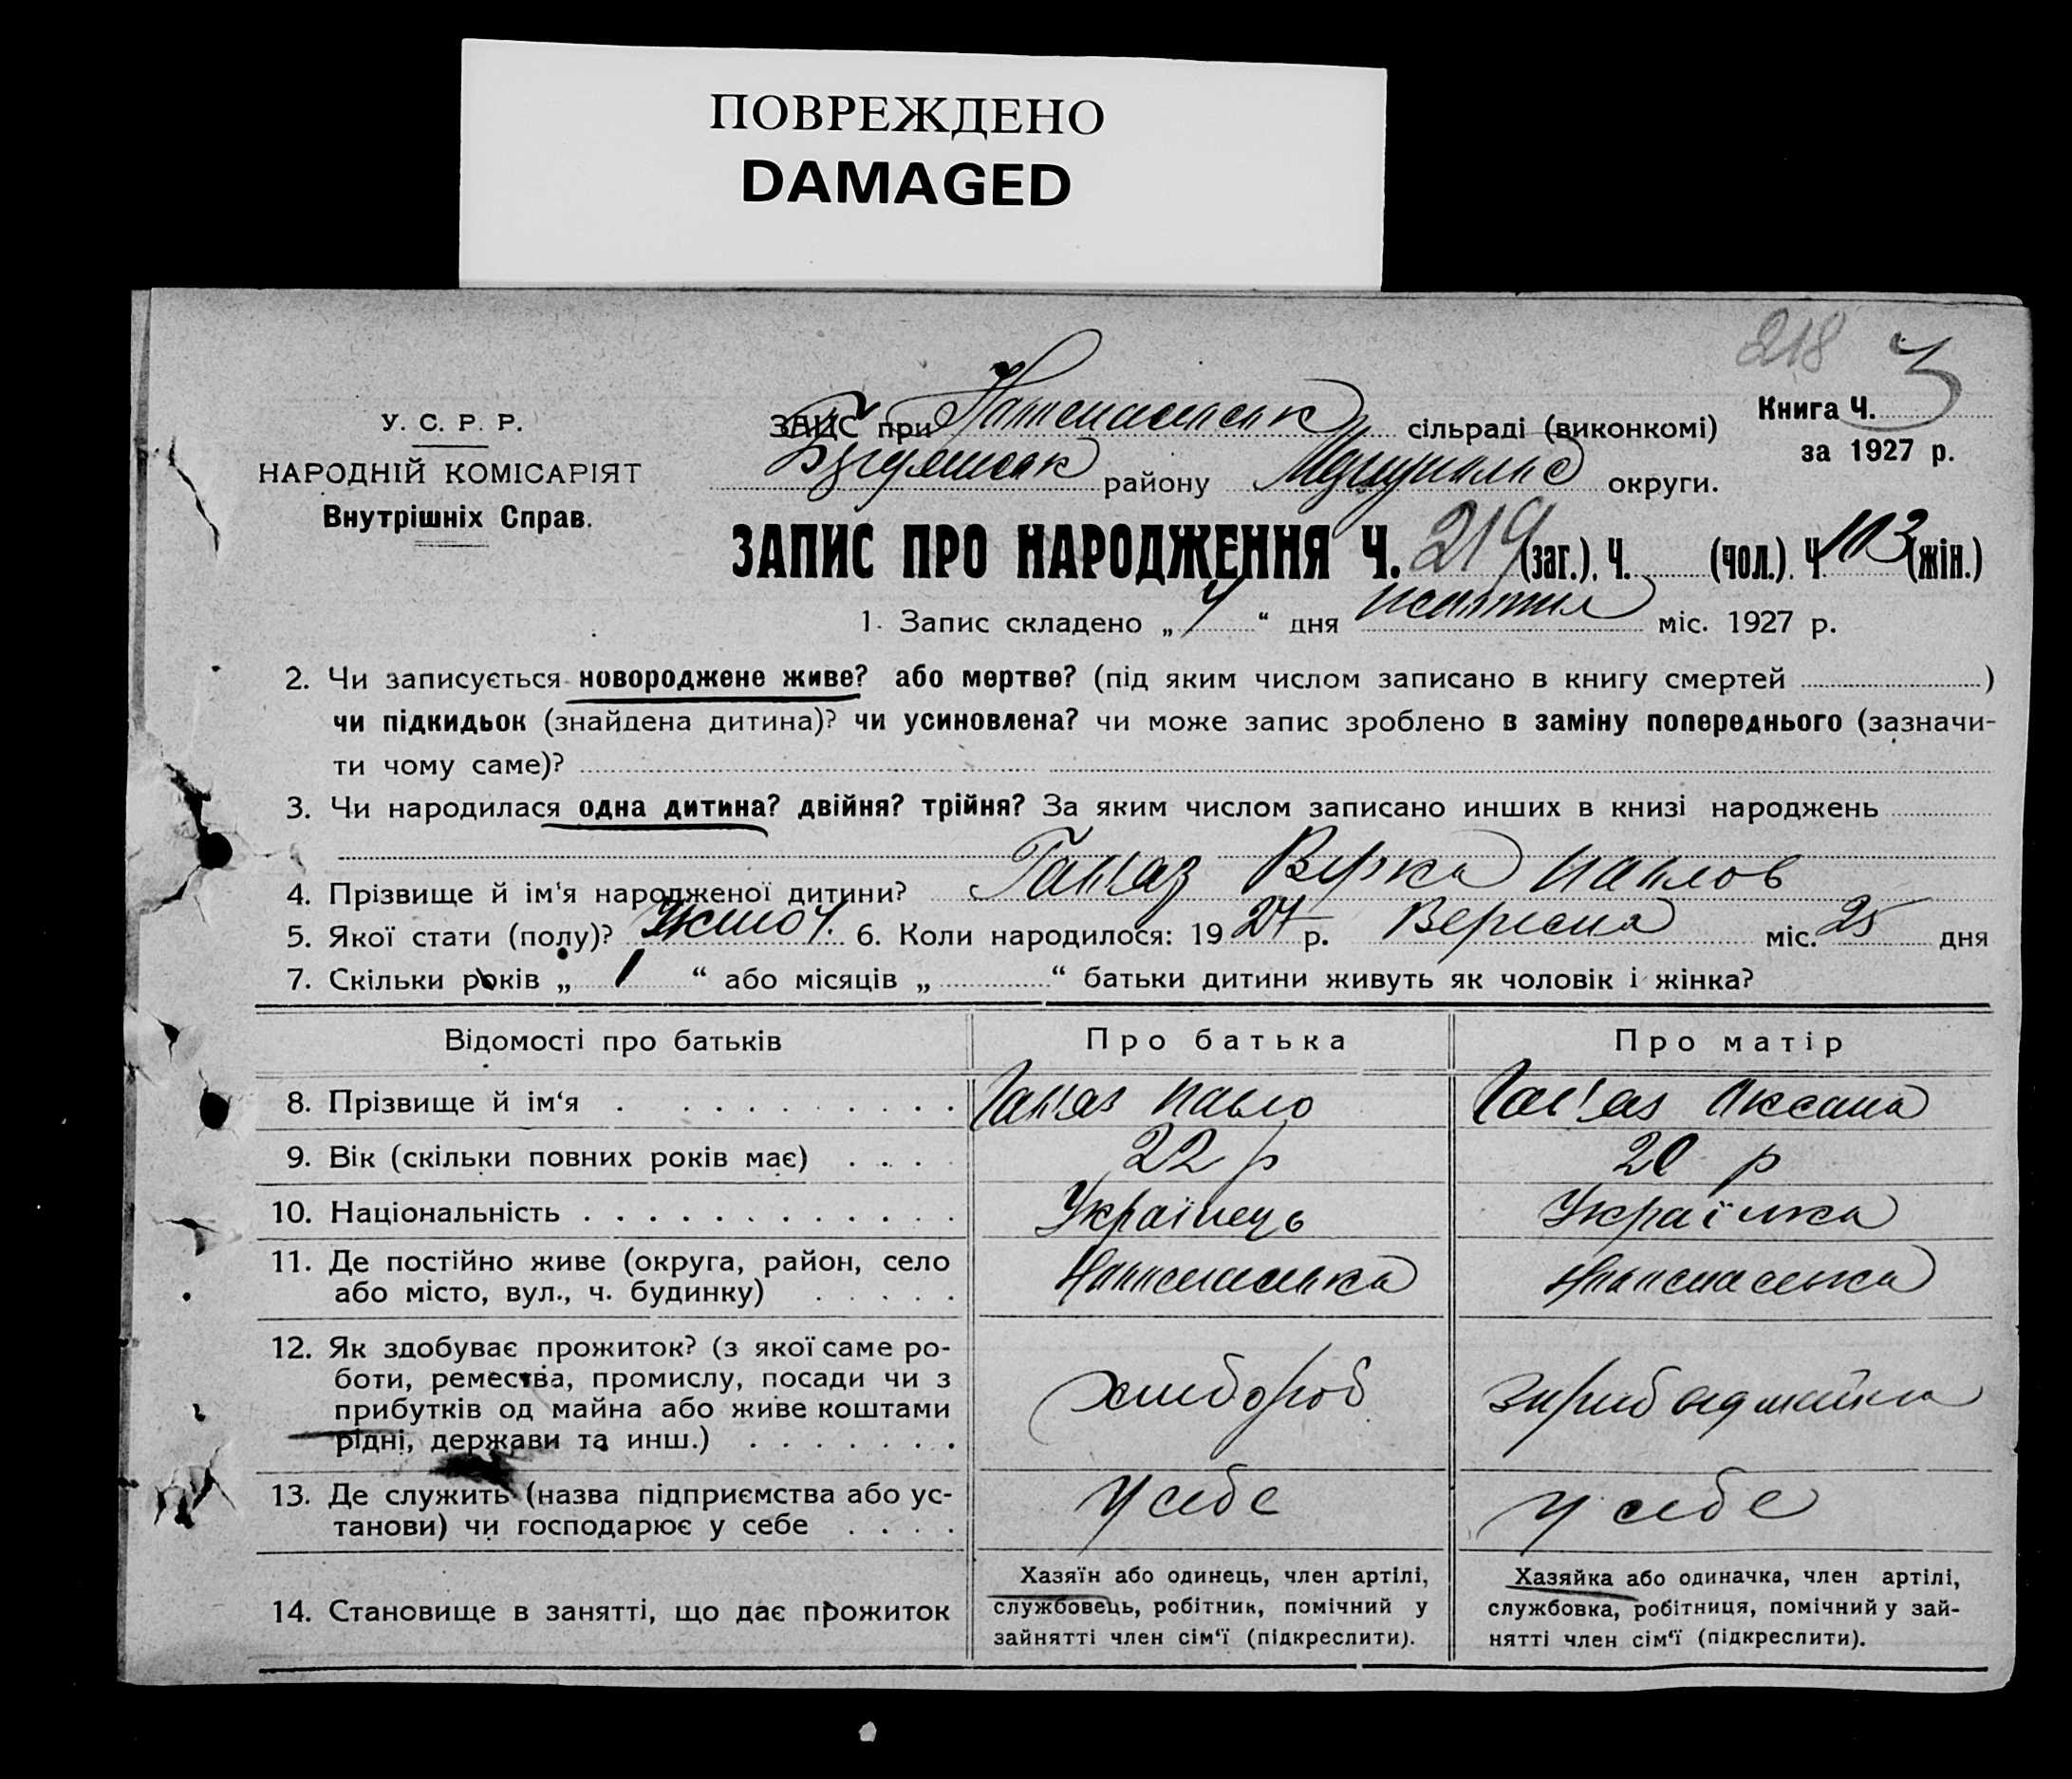 ПОВРЕЖДЕНО
DAMAGED
218 3
У. С. Р. Р.
НАРОДНІЙ КОМІСАРІЯТ
Внутрішніх Справ.
ЗАЦС при сільраді (виконкомі)
району округи.
Книга Ч.
за 1927 р.
ЗАПИС ПРО НАРОДЖЕННЯ Ч. 219 (заг.). Ч. (чол.). Ч. 113 (жін.)
1. Запис складено „ 4 “ дня міс. 1927 р.
2. Чи записується новороджене живе? або мертве? (під яким числом записано в книгу смертей )
чи підкидьок (знайдена дитина)? чи усиновлена? чи може запис зроблено в заміну попереднього (зазначи-
ти чому саме)?
3. Чи народилася одна дитина? двійня? трійня? За яким числом записано инших в книзі народжень
4. Прізвище й ім‘я народженої дитини? Вірка Павлов
5. Якої стати (полу)? 6. Коли народилося: 19 27 р. Вересня міс. 25 дня
7. Скільки років „ 1 “ або місяців „ “ батьки дитини живуть як чоловік і жінка?
Відомості про батьків Про батька Про матір
8. Прізвище й ім‘я Павло Оксана
9. Вік (скільки повних років має) 22 р 20 р
10. Національність Українець Українка
11. Де постійно живе (округа, район, село
або місто, вул., ч. будинку)
12. Як здобуває прожиток? (з якої саме ро-
боти, ремества, промислу, посади чи з
прибутків од майна або живе коштами
рідні, держави та инш.) хлибороб
13. Де служить (назва підприємства або ус-
танови) чи господарює у себе у себе у себе
14. Становище в занятті, що дає прожиток
Хазяїн або одинець, член артілі,
службовець, робітник, помічний у
зайнятті член сім‘ї (підкреслити).
Хазяйка або одиначка, член артілі,
службовка, робітниця, помічний у зай-
нятті член сім‘ї (підкреслити).